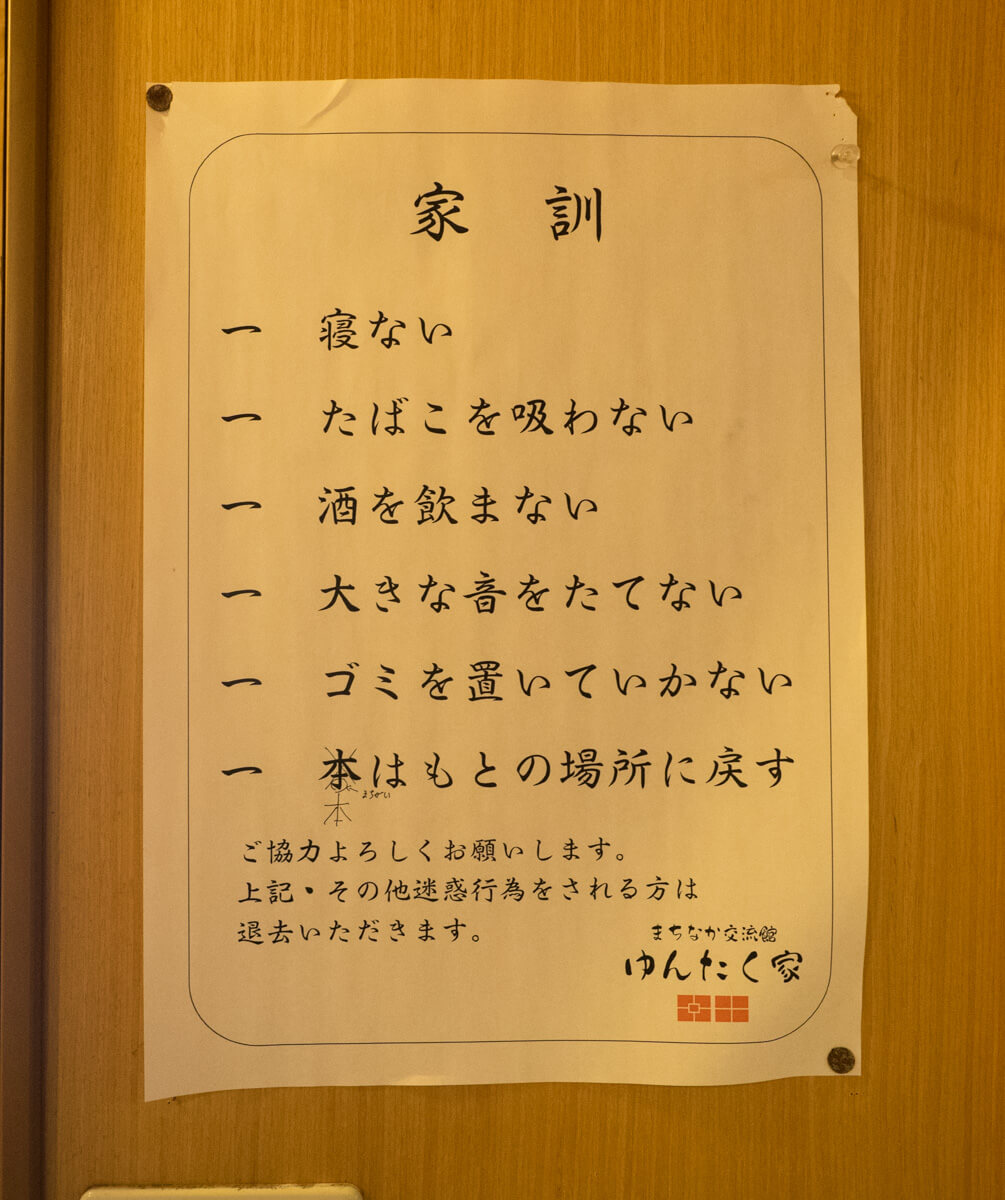 家 訓
一 寝ない
一 たばこを吸わない
一 酒を飲まない
一 大きな音をたてない
一 ゴミを置いていかない
一 本はもとの場所に戻す
まちがい
本
ご協力よろしくお願いします。
上記・その他迷惑行為をされる方は
退去いただきます。
まちなか交流館
ゆんたく家